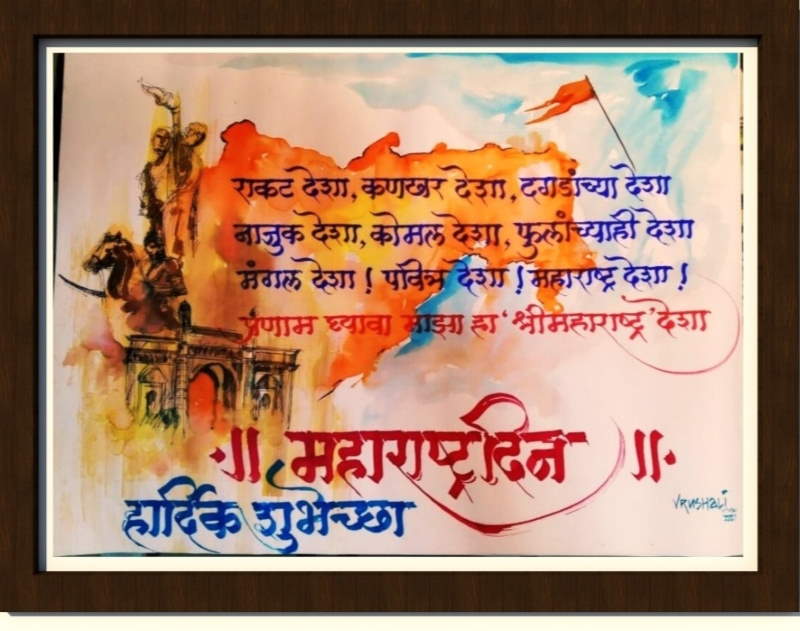 राकट देशा, कणखर देशा, दगडांच्या देशा
नाजुक देशा, कोमल देशा, फुलांच्याही देशा
मंगल देशा ! पवित्र देशा ! महाराष्ट्र देशा !
प्रणाम घ्यावा माझा हा ‘श्रीमहाराष्ट्र’ देशा
·॥ महाराष्ट्रदिन ॥·
हार्दिक शुभेच्छा
VRUSHALI